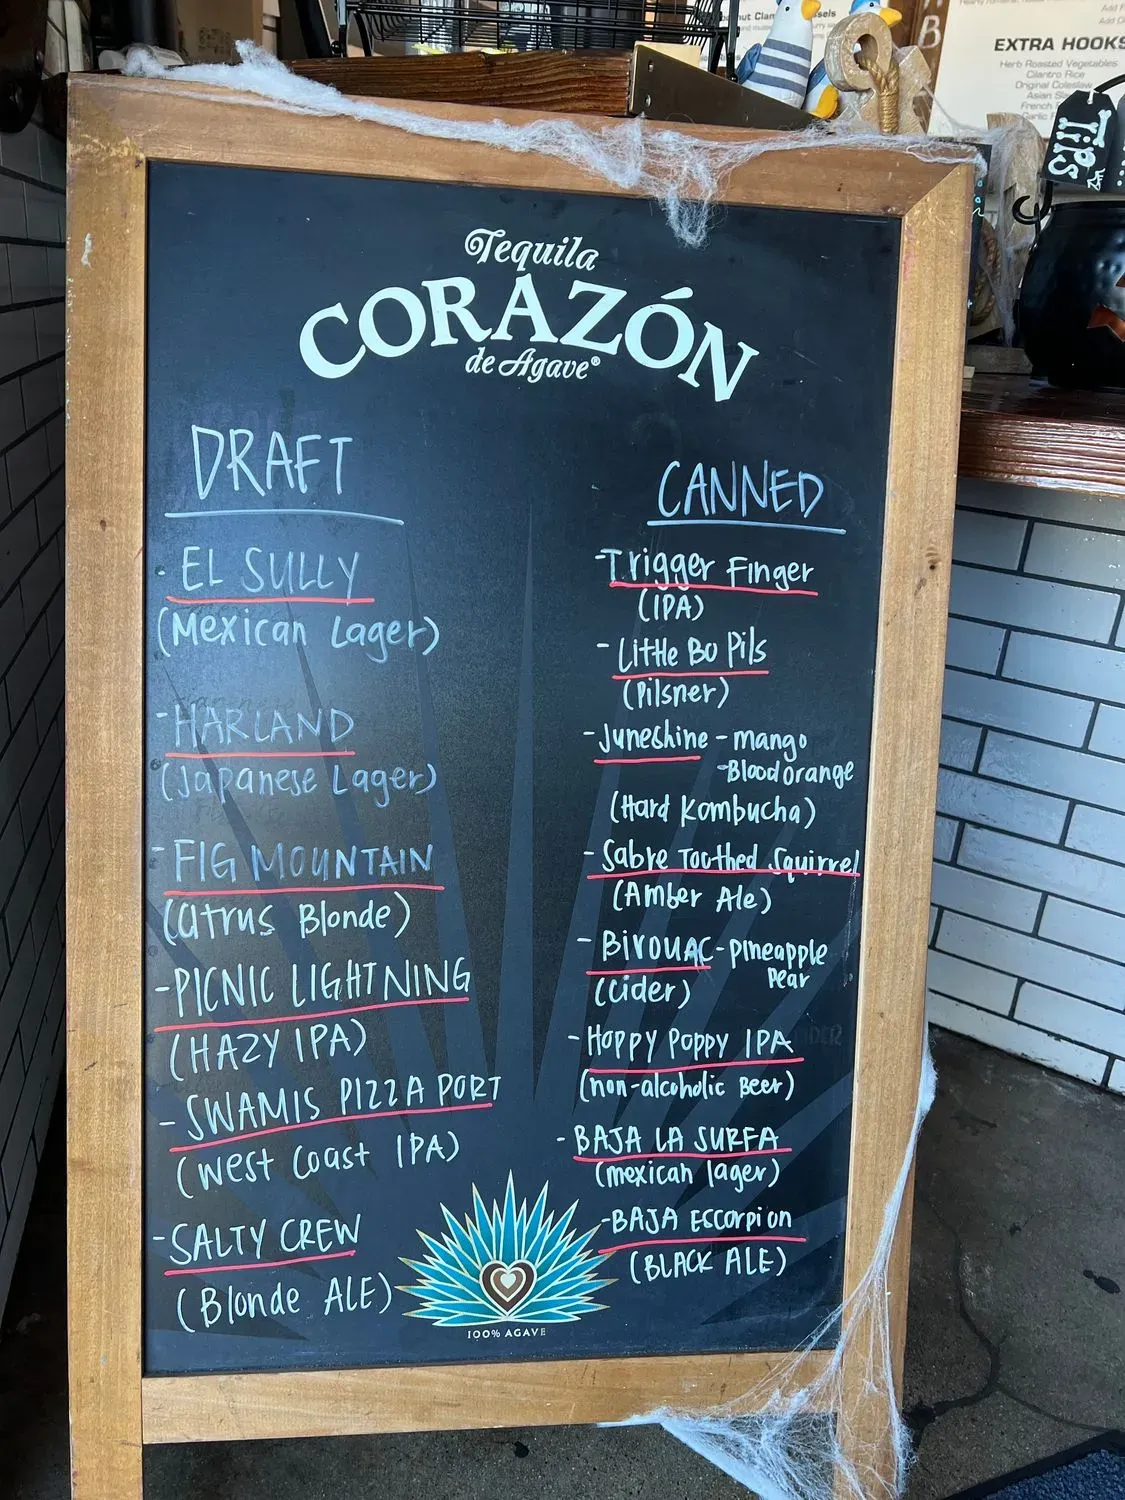 EXTRA HOOKS
Herb Roasted Vegetables
Cilantro Rice
Original Coleslaw
Asian
French
TIPS
Tequila
CORAZÓN
de Agave®
DRAFT
· EL SULLY
(Mexican Lager)
- HARLAND
(Japanese Lager)
- FIG MOUNTAIN
(Citrus Blonde)
- PICNIC LIGHTNING
(HAZY IPA)
- SWAMIS PIZZA PORT
(West Coast IPA)
- SALTY CREW
(Blonde ALE)
CANNED
- Trigger Finger
(IPA)
- Little Bo Pils
(Pilsner)
- Juneshine - mango
- Blood orange
(Hard Kombucha)
- Sabre Toothed Squirrel
(Amber Ale)
- Bivouac - pineapple
Pear
(Cider)
- Hoppy Poppy IPA
(non-alcoholic Beer)
- BAJA LA SURFA
(mexican lager)
- BAJA Escorpion
(BLACK ALE)
100% AGAVE